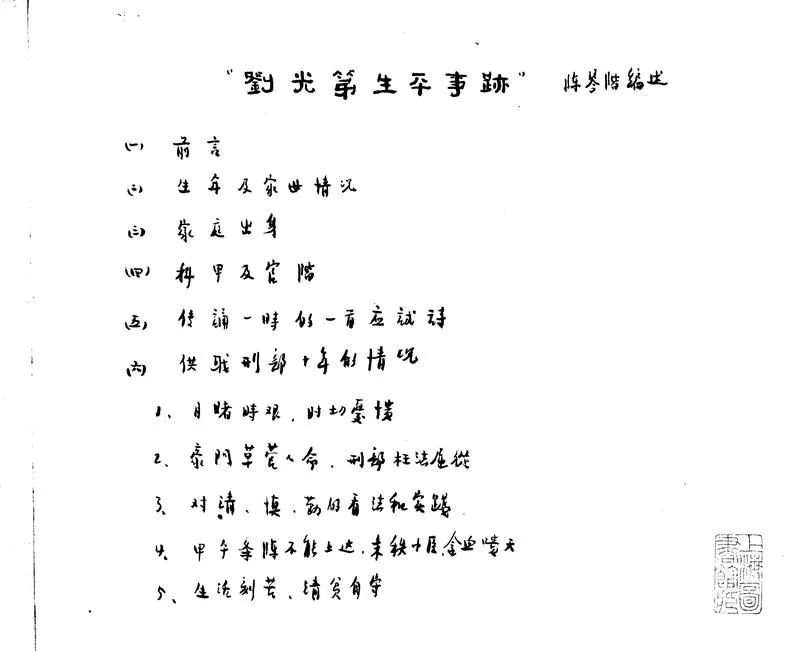 "劉光第生平事跡" 陈琴階編述
(一) 前言
(二) 生年及家世情况
(三) 家庭出身
(四) 科甲及官階
(五) 传誦一時的一首应試詩
(六) 供职刑部十年的情况
1、目睹時艰，时切憂憤
2、豪門草菅人命，刑部枉法屈從
3、对清、慎、勤的看法和实踐
4、甲午条陈不能上达，末秩小臣
5、生活刻苦、清贫自守
上海圖書館